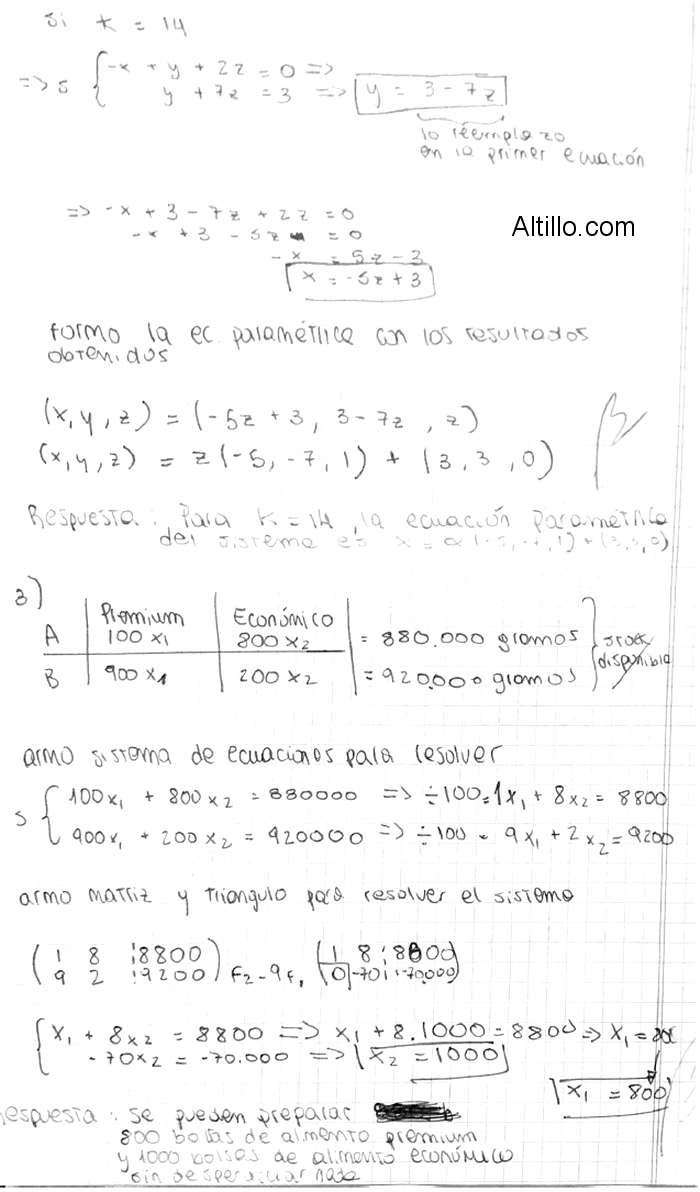 si k = 14
=> S { -x + y + 2z = 0 =>
y + 7z = 3 => y = 3 - 7z
lo reemplazo
en la primer ecuación
=> -x + 3 - 7z + 2z = 0
-x + 3 - 5z = 0
Altillo.com
-x = 5z - 3
x = -5z + 3
formo la ec. paramétrica con los resultados
obtenidos
(x, y, z) = (-5z + 3, 3 - 7z, z)
(x, y, z) = z(-5, -7, 1) + (3, 3, 0)
Respuesta: Para k = 14, la ecuación paramétrica
del sistema es x = α(-5, -7, 1) + (3, 3, 0)
3)
Premium Económico
A 100 x₁ 800 x₂ = 880.000 gramos
B 900 x₁ 200 x₂ = 920.000 gramos
stock
disponible
armo sistema de ecuaciones para resolver
S { 100x₁ + 800x₂ = 880000 => ÷100 = 1x₁ + 8x₂ = 8800
900x₁ + 200x₂ = 920000 => ÷100 = 9x₁ + 2x₂ = 9200
armo matriz y triangulo para resolver el sistema
( 1 8 ¦ 8800 ) ( 1 8 ¦ 8800 )
( 9 2 ¦ 9200 ) F₂ - 9F₁ ( 0 -70 ¦ -70.000 )
{ x₁ + 8x₂ = 8800 => x₁ + 8.1000 = 8800 => x₁ = 800
-70x₂ = -70.000 => x₂ = 1000
x₁ = 800
espuesta: se pueden preparar
800 bolsas de alimento premium
y 1000 bolsas de alimento económico
sin desperdiciar nada